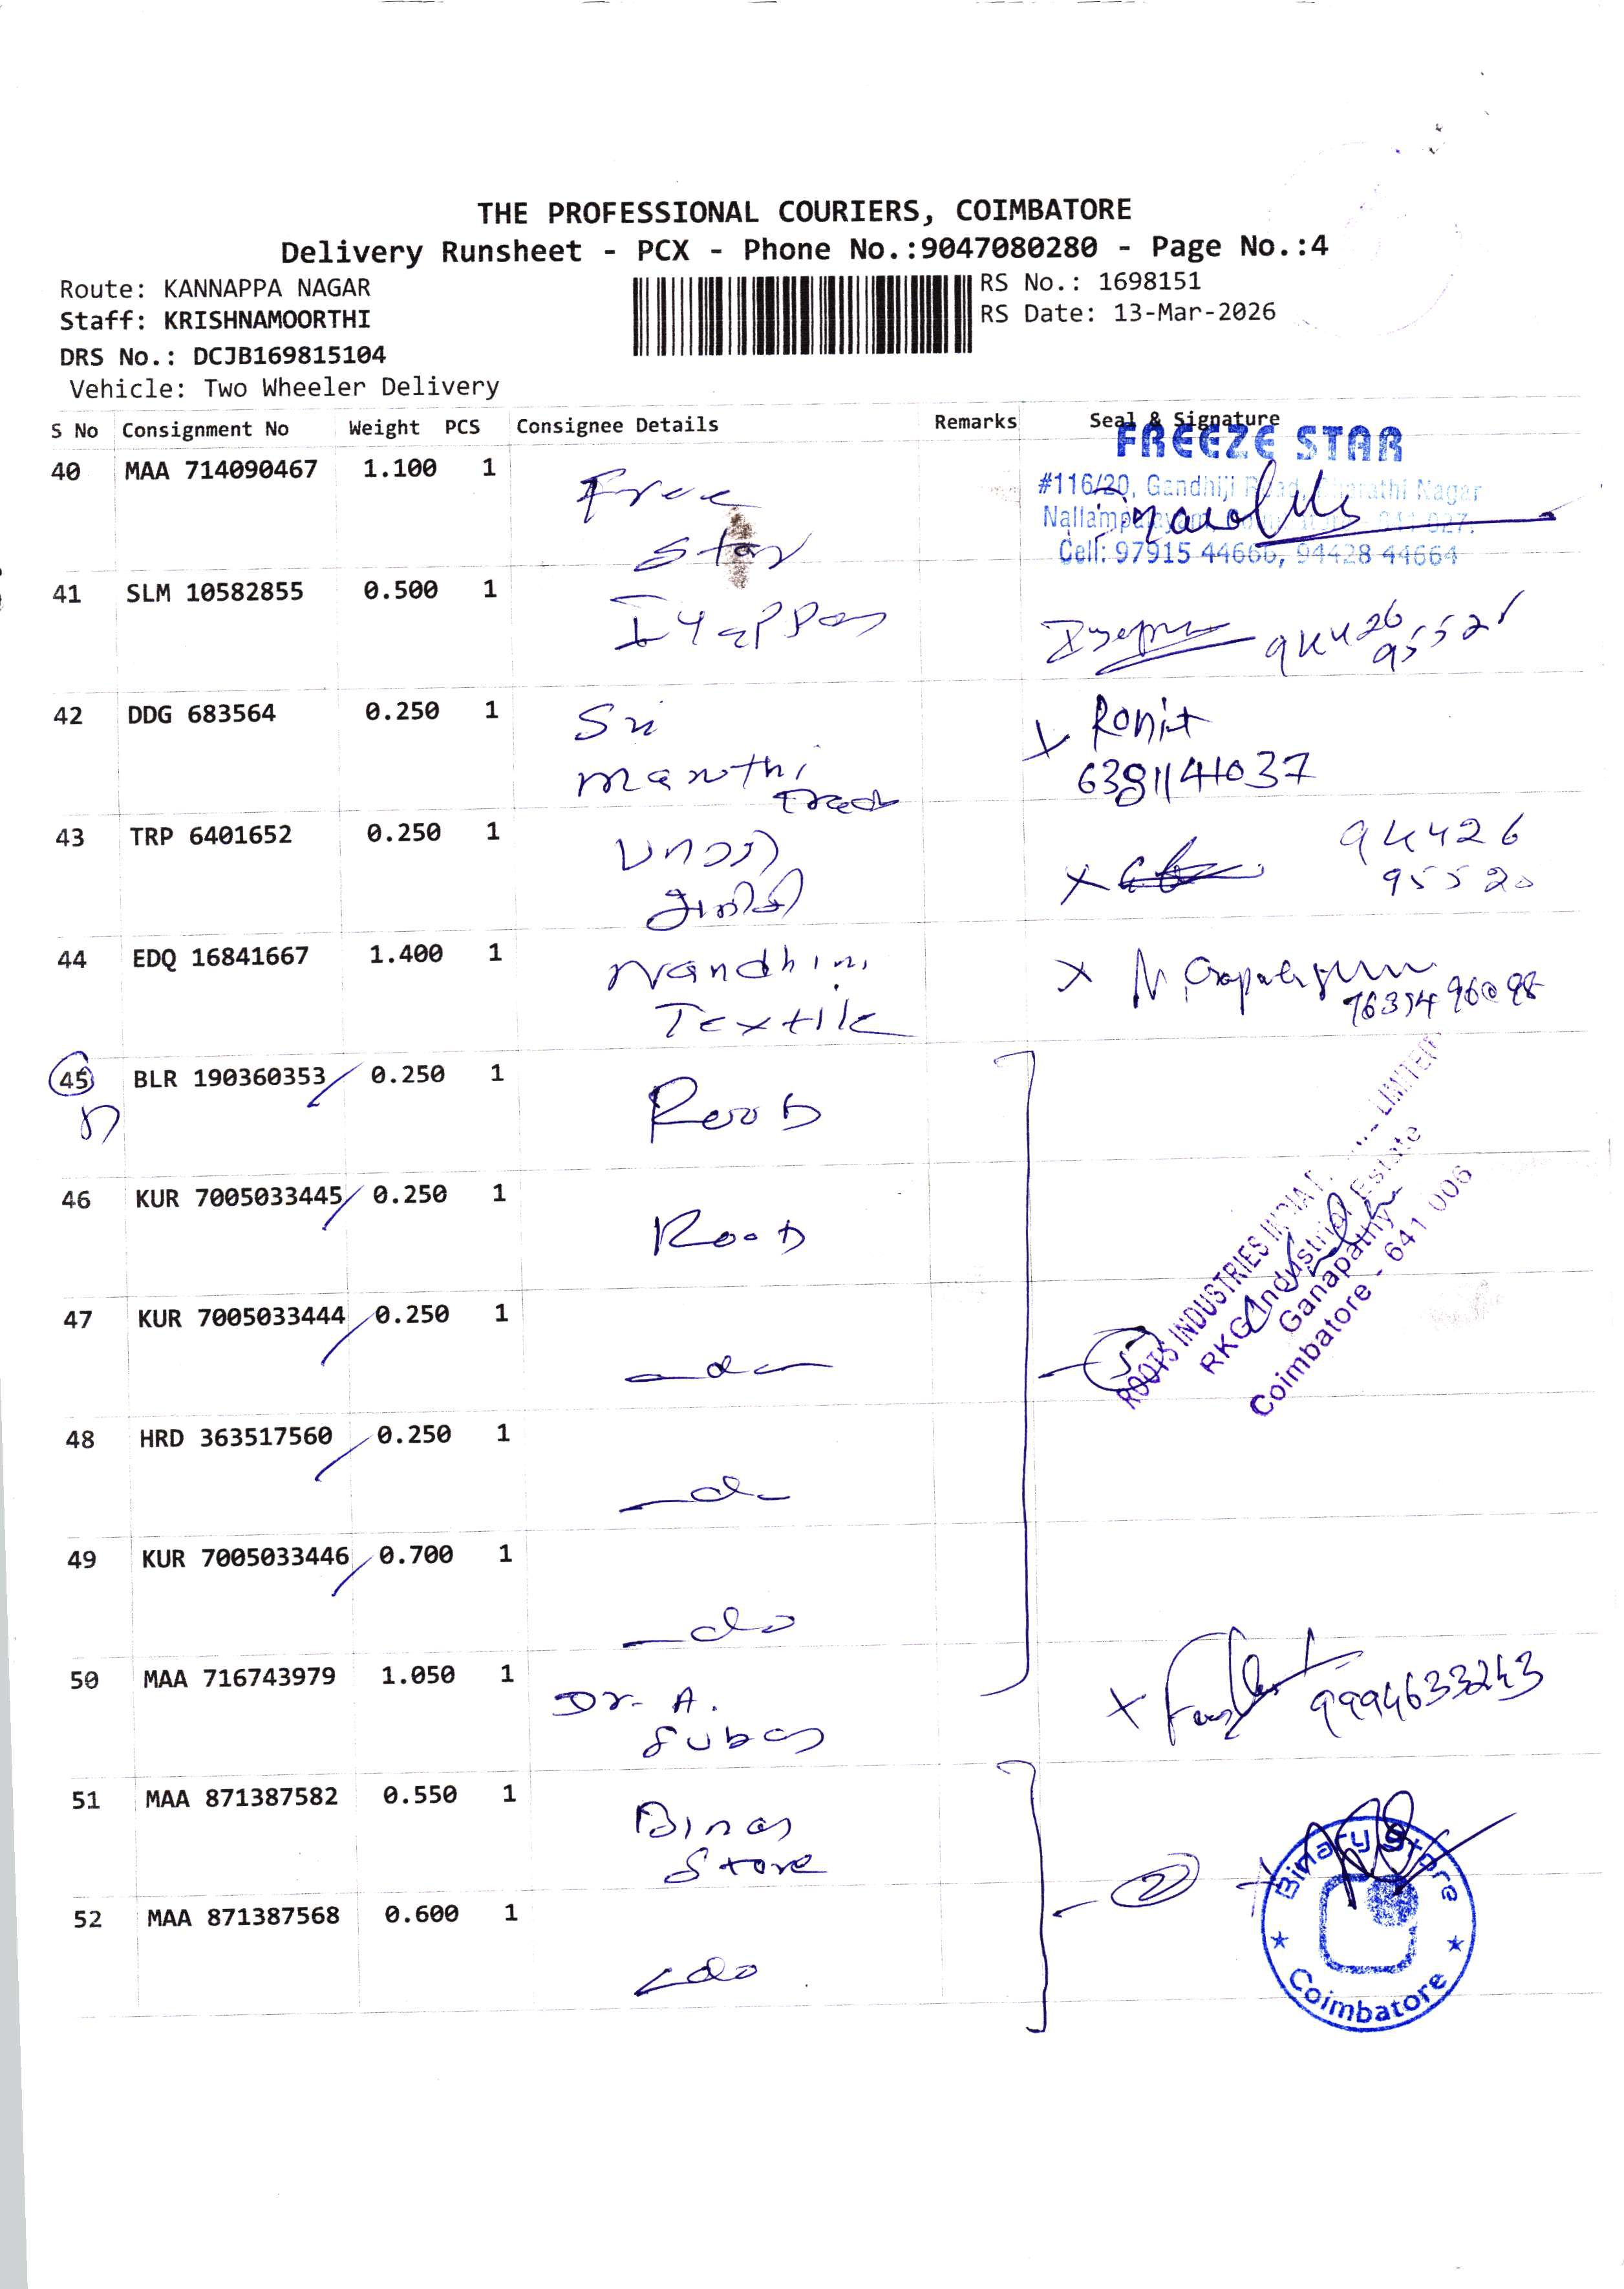 THE PROFESSIONAL COURIERS, COIMBATORE
Delivery Runsheet - PCX - Phone No.:9047080280 - Page No.:4
Route: KANNAPPA NAGAR
RS No.: 1698151
Staff: KRISHNAMOORTHI
RS Date: 13-Mar-2026
DRS No.: DCJB169815104
Vehicle: Two Wheeler Delivery
S No Consignment No Weight PCS Consignee Details Remarks Seal & Signature
FREEZE STAR
40 MAA 714090467 1.100 1 Free
#116/20, Gandhiji Road, Bharathi Nagar
Star
Cell: 97915 44666, 94428 44664
41 SLM 10582855 0.500 1 Iyappan
94426
95521
42 DDG 683564 0.250 1 Sri
Ronit
Maruthi
6381141037
43 TRP 6401652 0.250 1
94426
95520
44 EDQ 16841667 1.400 1 Nandhini
Textile
45 BLR 190360353 0.250 1
46 KUR 7005033445 0.250 1
47 KUR 7005033444 0.250 1
5
ROOTS INDUSTRIES INDIA LIMITED
RKG Industrial Estate
Ganapathy
Coimbatore - 641 006
48 HRD 363517560 0.250 1
49 KUR 7005033446 0.700 1
do
50 MAA 716743979 1.050 1 Dr. A.
9994633243
51 MAA 871387582 0.550 1
Store
2
Binary Store
Coimbatore
52 MAA 871387568 0.600 1
do